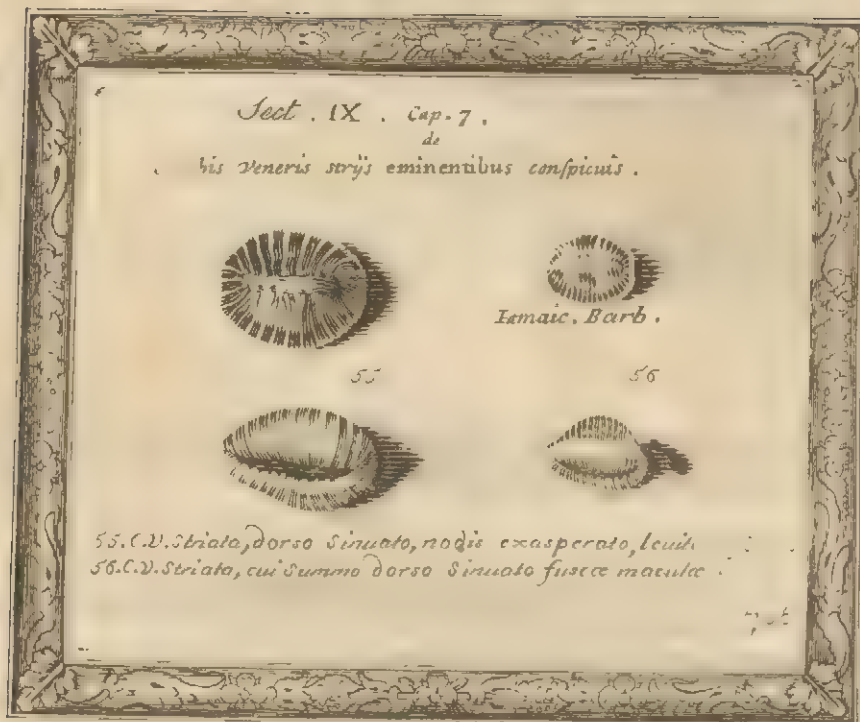 Sect. IX. Cap. 7.
de
his Veneris strijs eminentibus conspicuis.
Iamaic. Barb.
55 56
55. C.V. Striata, dorso Sinuato, nodis exasperato,
56. C.V. Striata, cui Summo dorso Sinuato fuscæ maculæ